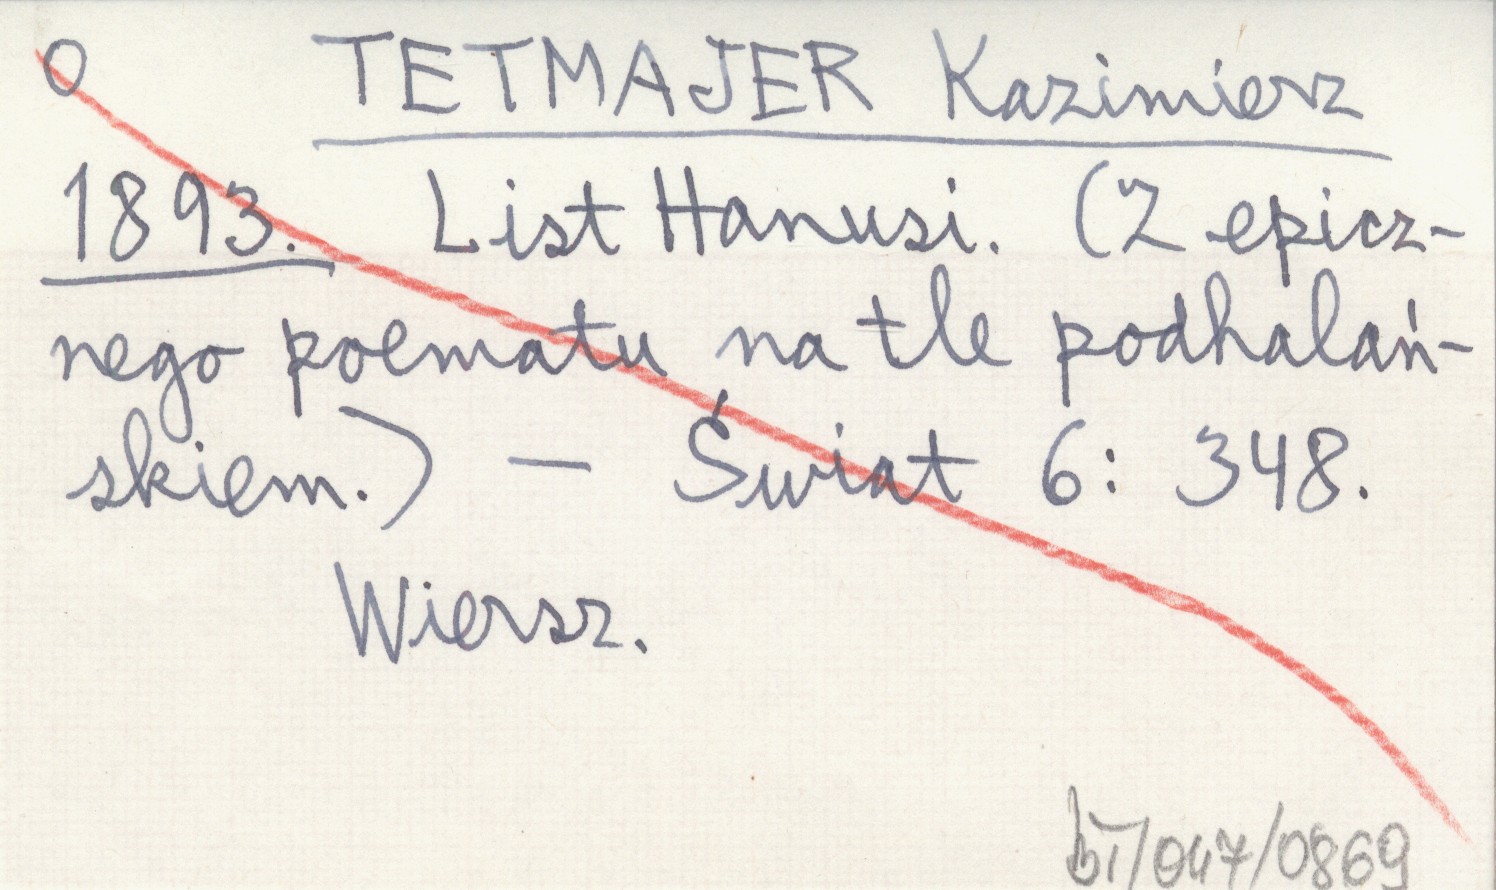 O TETMAJER Kazimierz
1893. List Hanusi. (Z epicz-
nego poematu na tle podhalań-
skiem.) — Świat 6: 348.
Wiersz.
bT/047/0869